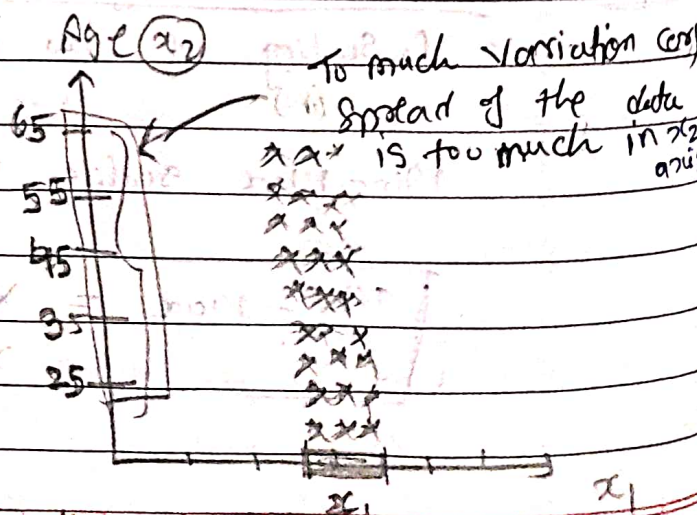 Age x₂
To much Variation (or)
Spread of the data
is too much in x₂
axis
65
55
45
35
25
x₁
x₁